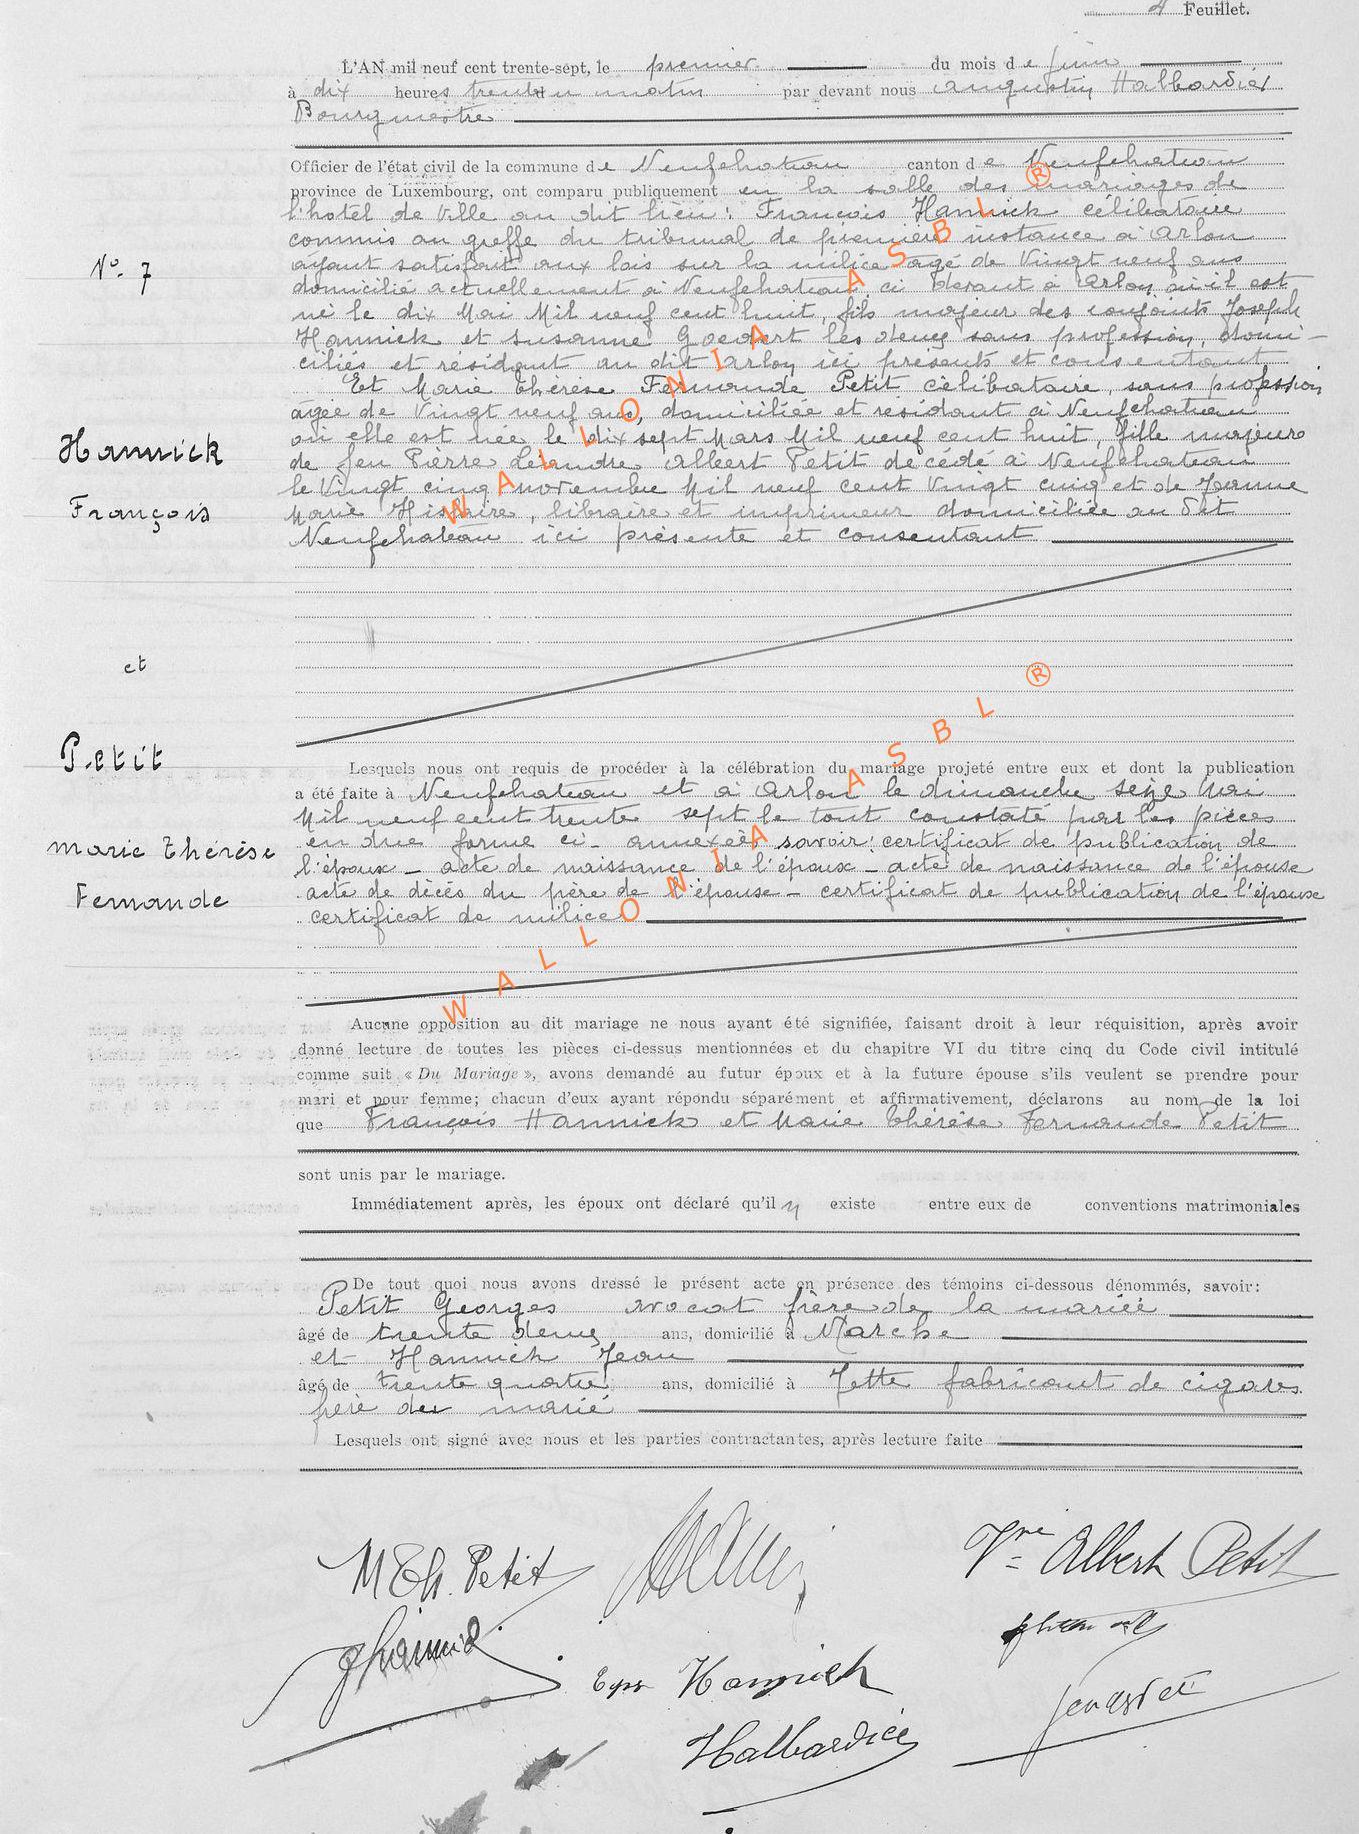 4 Feuillet.
L'AN mil neuf cent trente-sept, le premier du mois de juin
à dix heures trente du matin par devant nous Augustin Halbardier
Bourgmestre
Officier de l'état civil de la commune de Neufchateau canton de Neufchateau
province de Luxembourg, ont comparu publiquement en la salle des mariages de
l'hotel de Ville au dit lieu : François Hannick célibataire
commis au greffe du tribunal de première instance à Arlon
ayant satisfait aux lois sur la milice agé de Vingt neuf ans
N° 7
domicilié actuellement à Neufchateau, ci devant à Arlon où il est
né le dix Mai Mil neuf cent huit, fils majeur des conjoints Joseph
Hannick et Susanne Goedert les deux sans profession, domi-
ciliés et résidant au dit Arlon ici présents et consentant
Et Marie Thérèse Fernande Petit célibataire, sans profession
agée de Vingt neuf ans, domiciliée et résidant à Neufchateau
où elle est née le dix sept Mars Mil neuf cent huit, fille majeure
Hannick
de feu Pièrre Albert Petit décédé à Neufchateau
le Vingt cinq novembre Mil neuf cent Vingt cinq et de Jeanne
François
Marie, libraire et imprimeur domiciliée au dit
Neufchateau ici présente et consentant
et
Petit
Lesquels nous ont requis de procéder à la célébration du mariage projeté entre eux et dont la publication
a été faite à Neufchateau et à Arlon le dimanche seize Mai
Mil neuf cent trente sept le tout constaté par les pièces
en due forme ci-annexées savoir : certificat de publication de
Marie Thérèse
l'époux - acte de naissance de l'époux - acte de naissance de l'épouse
acte de décès du père de l'épouse - certificat de publication de l'épouse
Fernande
certificat de milice
Aucune opposition au dit mariage ne nous ayant été signifiée, faisant droit à leur réquisition, après avoir
donné lecture de toutes les pièces ci-dessus mentionnées et du chapitre VI du titre cinq du Code civil intitulé
comme suit « Du Mariage », avons demandé au futur époux et à la future épouse s'ils veulent se prendre pour
mari et pour femme; chacun d'eux ayant répondu séparément et affirmativement, déclarons au nom de la loi
que François Hannick et Marie Thérèse Fernande Petit
sont unis par le mariage.
Immédiatement après, les époux ont déclaré qu'il n existe entre eux de conventions matrimoniales
De tout quoi nous avons dressé le présent acte en présence des témoins ci-dessous dénommés, savoir:
Petit Georges avocat frère de la mariée
âgé de trente deux ans, domicilié à Marche
et Hannick Jean
âgé de trente quatre ans, domicilié à Jette fabricant de cigares
frère du marié
Lesquels ont signé avec nous et les parties contractantes, après lecture faite
M Th. Petit
Vve Albert Petit
Hannick
Halbardier
WALLONIA ASBL ®
WALLONIA ASBL ®